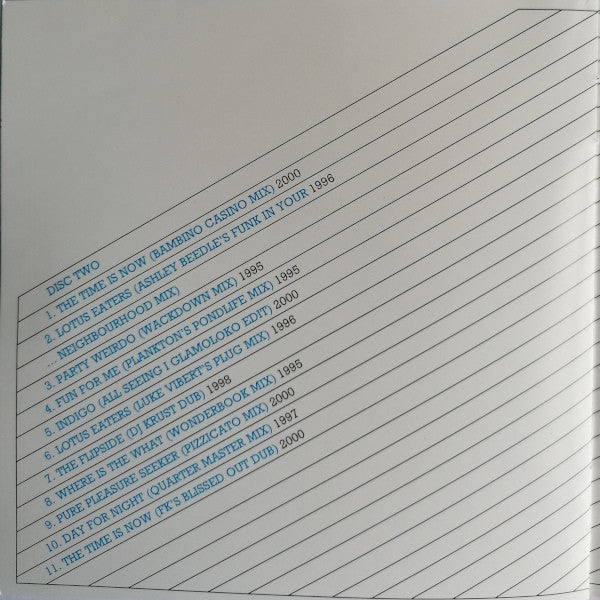 DISC TWO
1. THE TIME IS NOW (BAMBINO CASINO MIX) 2000
2. LOTUS EATERS (ASHLEY BEEDLE'S FUNK IN YOUR 1996
... NEIGHBOURHOOD MIX)
3. PARTY WEIRDO (WACKDOWN MIX) 1995
4. FUN FOR ME (PLANKTON'S PONDLIFE MIX) 1995
5. INDIGO (ALL SEEING I GLAMOLOKO EDIT) 2000
6. LOTUS EATERS (LUKE VIBERT'S PLUG MIX) 1996
7. THE FLIPSIDE (DJ KRUST DUB) 1998
8. WHERE IS THE WHAT (WONDERBOOK MIX) 1995
9. PURE PLEASURE SEEKER (PIZZICATO MIX) 2000
10. DAY FOR NIGHT (QUARTER MASTER MIX) 1997
11. THE TIME IS NOW (FK'S BLISSED OUT DUB) 2000